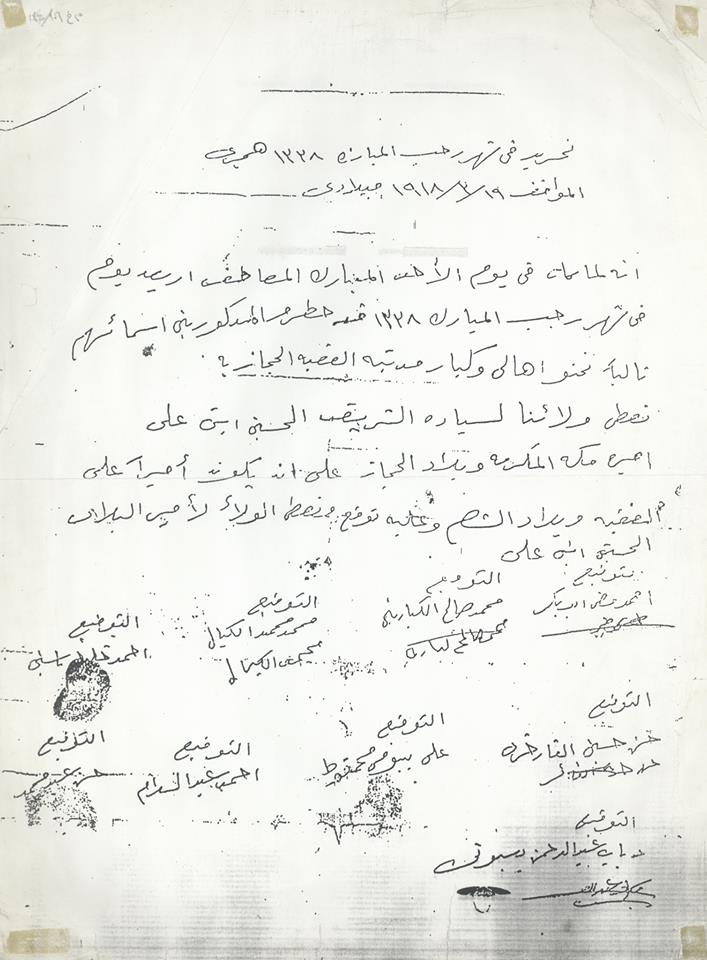 تحرير في شهر رجب المبارك ١٣٣٨ هجري
الموافق ١٩/٣/١٩١٨ ميلادي
انه لما مات في يوم الأحد المبارك المصادف اربعه يوم
في شهر رجب المبارك ١٣٣٨ قد حظر المذكورين اسمائهم
تالياً نحنو اهالي وكبار مدينه العقبه الحجازيه
نعطي ولائنا لسياده الشريف الحسين ابن علي
امير مكه المكرمه وبلاد الحجاز على ان يكون أميراً على
العقبه وبلاد الشام وعليه نوقع ونعطي الولاء لأمير البلاد
الحسين ابن علي
بتوقيع
احمد
التوقيع
محمد صالح الكباريتي
محمد صالح كباريتي
التوقيع
محمد محمد الكيال
محمد الكيال
التوقيع
احمد خليل ياسين
التوقيع
حسن حسين
التوقيع
علي محمد
التوقيع
احمد عبد السلام
التوقيع
حسن عبد محمد
التوقيع
دياب عبد الرحمن بسيوني